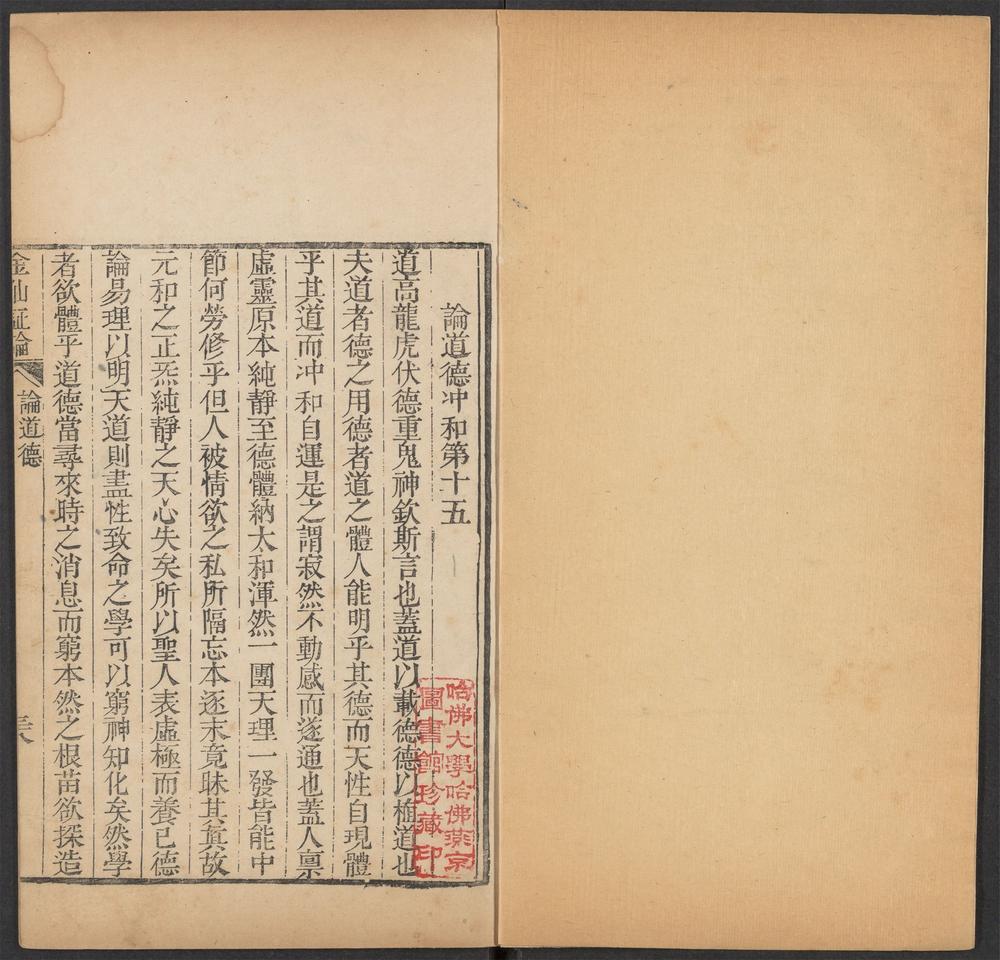 論道德冲和第十五
道高龍虎伏德重鬼神欽斯言也蓋道以載德德以植道也
夫道者德之用德者道之體人能明乎其德而天性自現體
乎其道而冲和自運是之謂寂然不動感而遂通也蓋人禀
虛靈原本純靜至德體納太和渾然一團天理一發皆能中
節何勞修乎但人被情欲之私所隔忘本逐末竟昧其眞故
元和之正炁純靜之天心失矣所以聖人表虛極而養已德
論易理以明天道則盡性致命之學可以窮神知化矣然學
者欲體乎道德當尋來時之消息而窮本然之根苗欲探造
金仙証論
論道德
三八
哈佛大學哈佛燕京
圖書館珍藏印